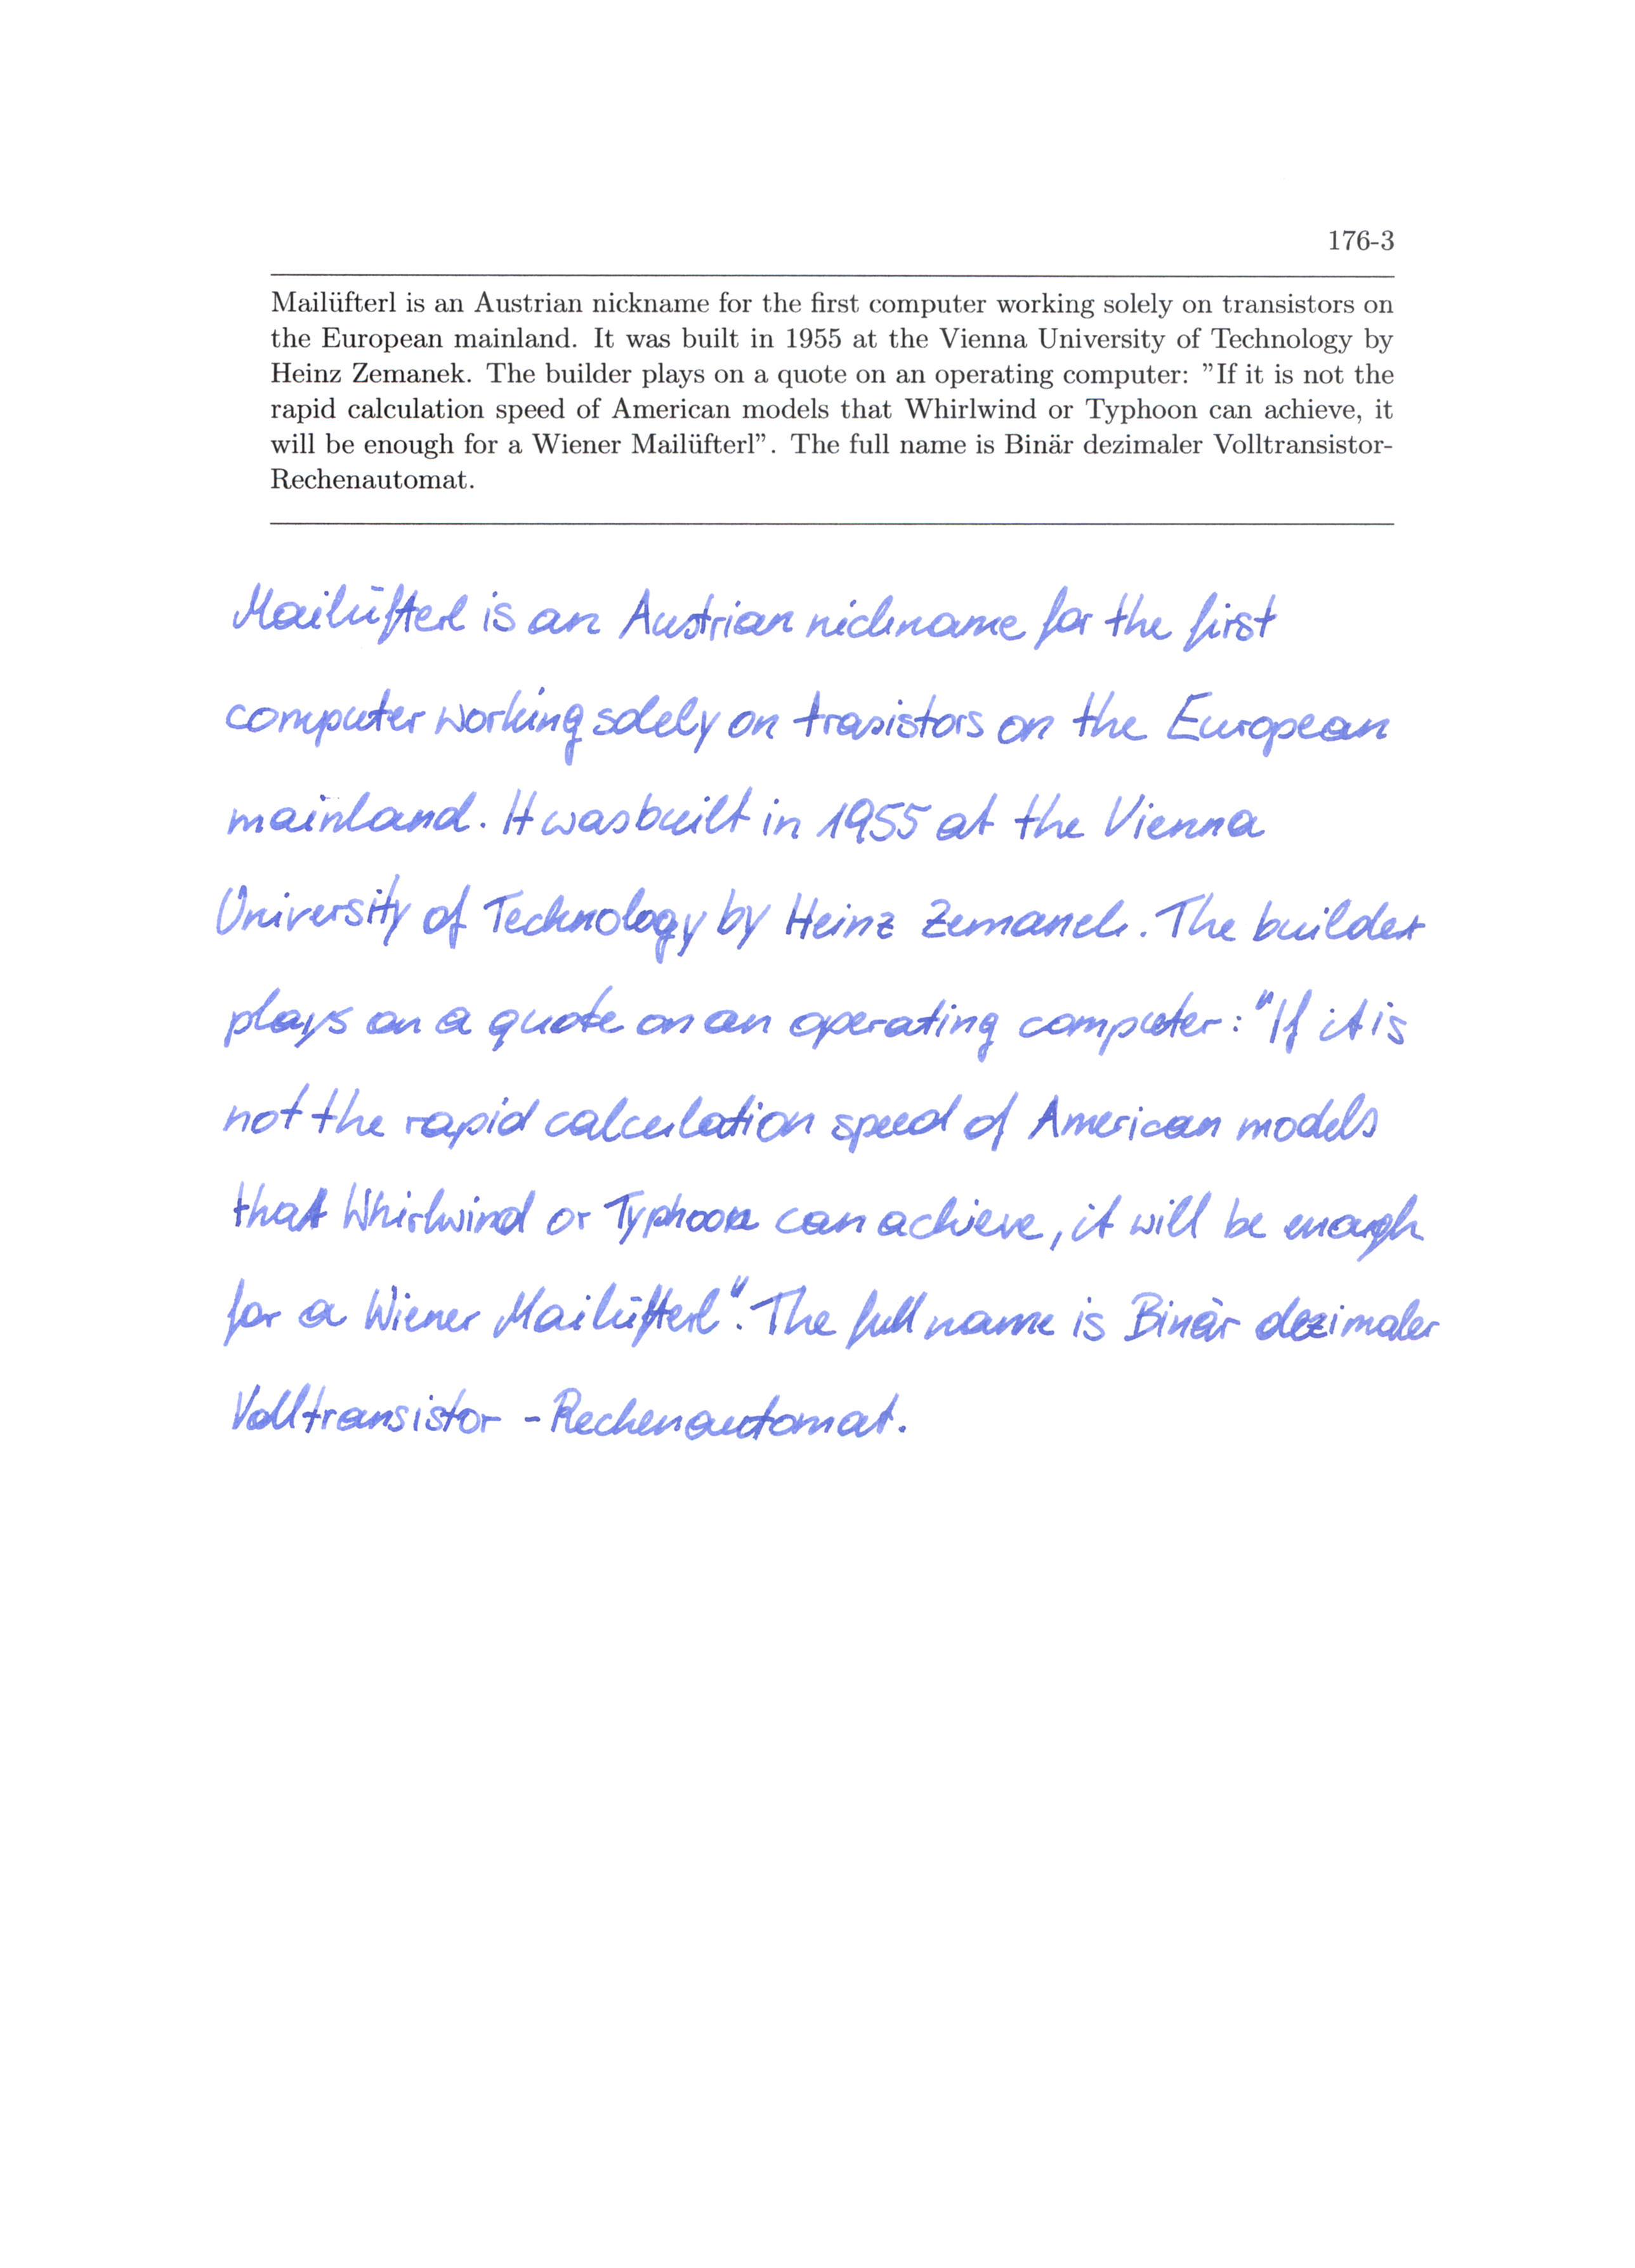 176-3
Mailüfterl is an Austrian nickname for the first computer working solely on transistors on
the European mainland. It was built in 1955 at the Vienna University of Technology by
Heinz Zemanek. The builder plays on a quote on an operating computer: ”If it is not the
rapid calculation speed of American models that Whirlwind or Typhoon can achieve, it
will be enough for a Wiener Mailüfterl”. The full name is Binär dezimaler Volltransistor-
Rechenautomat.
Mailüfterl is an Austrian nickname for the first
computer working solely on trasistors on the European
mainland. It was built in 1955 at the Vienna
University of Technology by Heinz Zemanek. The builder
plays on a quote on an operating computer: "If it is
not the rapid calculation speed of American models
that Whirlwind or Typhoon can achieve, it will be enough
for a Wiener Mailüfterl". The full name is Binär dezimaler
Volltransistor - Rechenautomat.